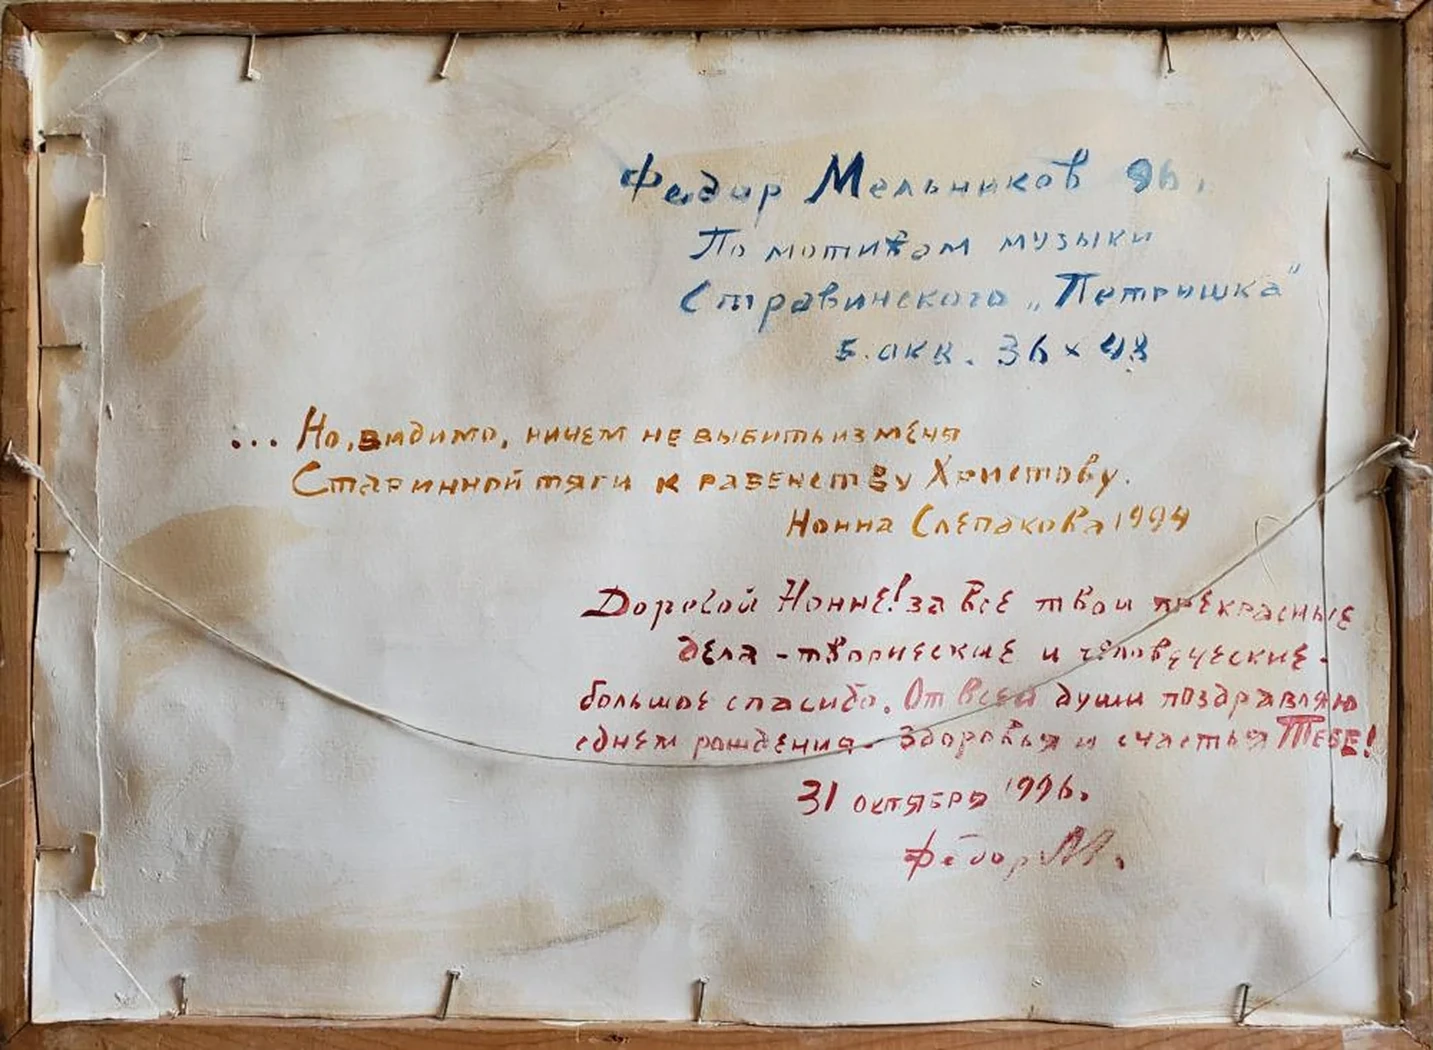 Федор Мельников 96.
По мотивам музыки
Стравинского „Петрушка"
б. акв. 36 x 48
... Но, видимо, ничем не выбить из меня
Старинной тяги к равенству Христову.
Нонна Слепакова 1994
Дорогой Нонне! за все твои прекрасные
дела - творческие и человеческие -
большое спасибо. От всей души поздравляю
с днем рождения. Здоровья и счастья ТЕБЕ!
31 октября 1996.
Федор М.